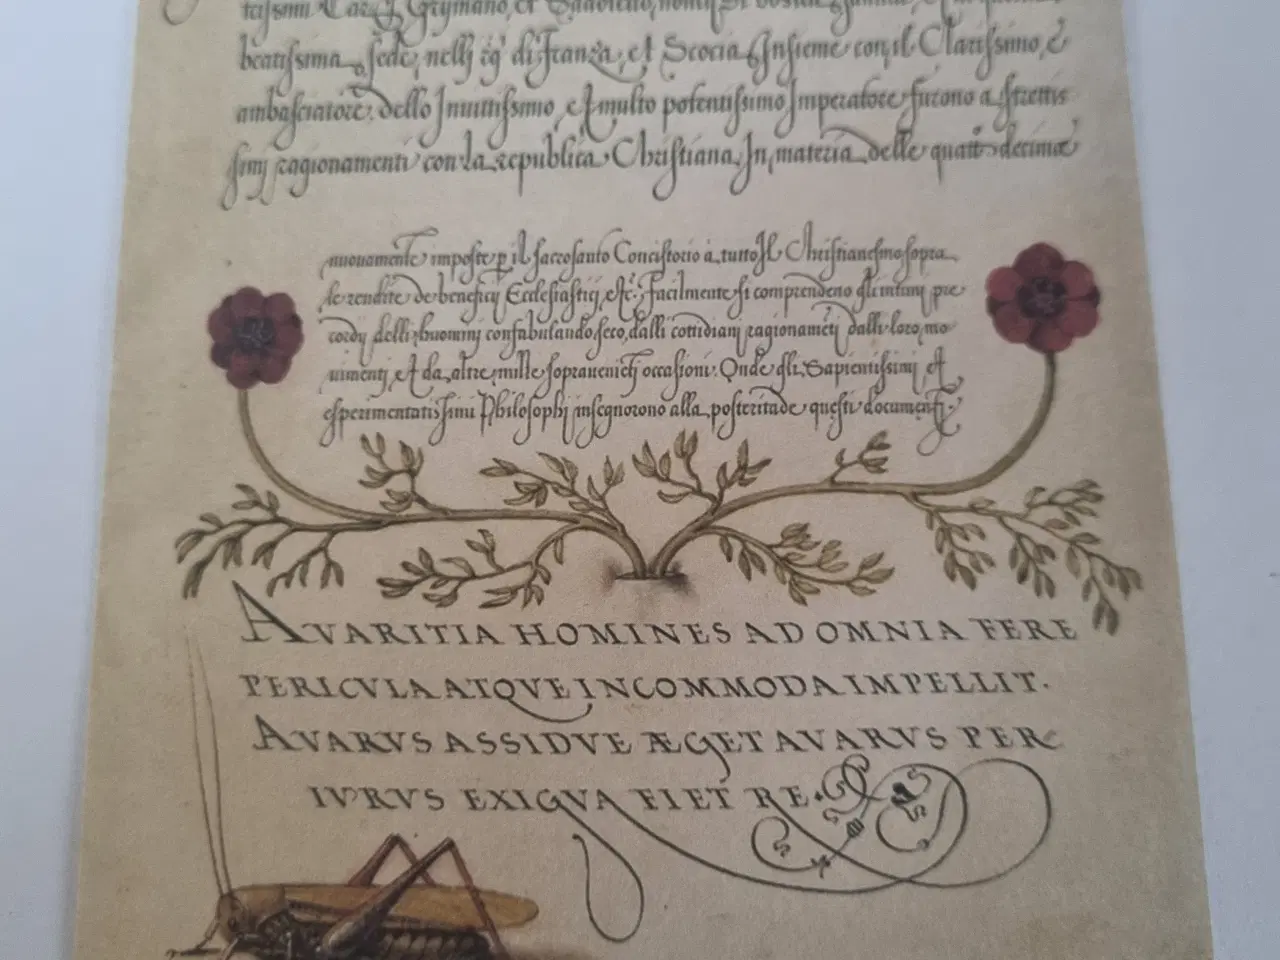 beatissima sede, nelli rg̃ di Franza, et Scocia Insieme con il Clarissimo,
ambasciatore dello Inuittissimo, et multo potentissimo Imperatore furono a strettis
simi ragionamenti con la republica Christiana, In materia delle quatt decime
nuouamente imposte p il sacrosanto Concistorio a tutto Il Christianesmo sopra
le rendite de beneficij Ecclesiastici, etc̃. Facilmente si comprendeno gli intimi pre
cordij delli huomini confabulando seco, dalli cottidiani ragionamẽti dalli loro mo
uimenti, et da altre mille soprauenieti occasioni. Onde gli Sapientissimi et
esperimentatissimi Philosophi insegnorono alla posteritade questi documenti
AVARITIA HOMINES AD OMNIA FERE
PERICVLA ATQVE INCOMMODA IMPELLIT.
AVARVS ASSIDVE ÆGET AVARVS PER
IVRVS EXIGVA FIET RE.